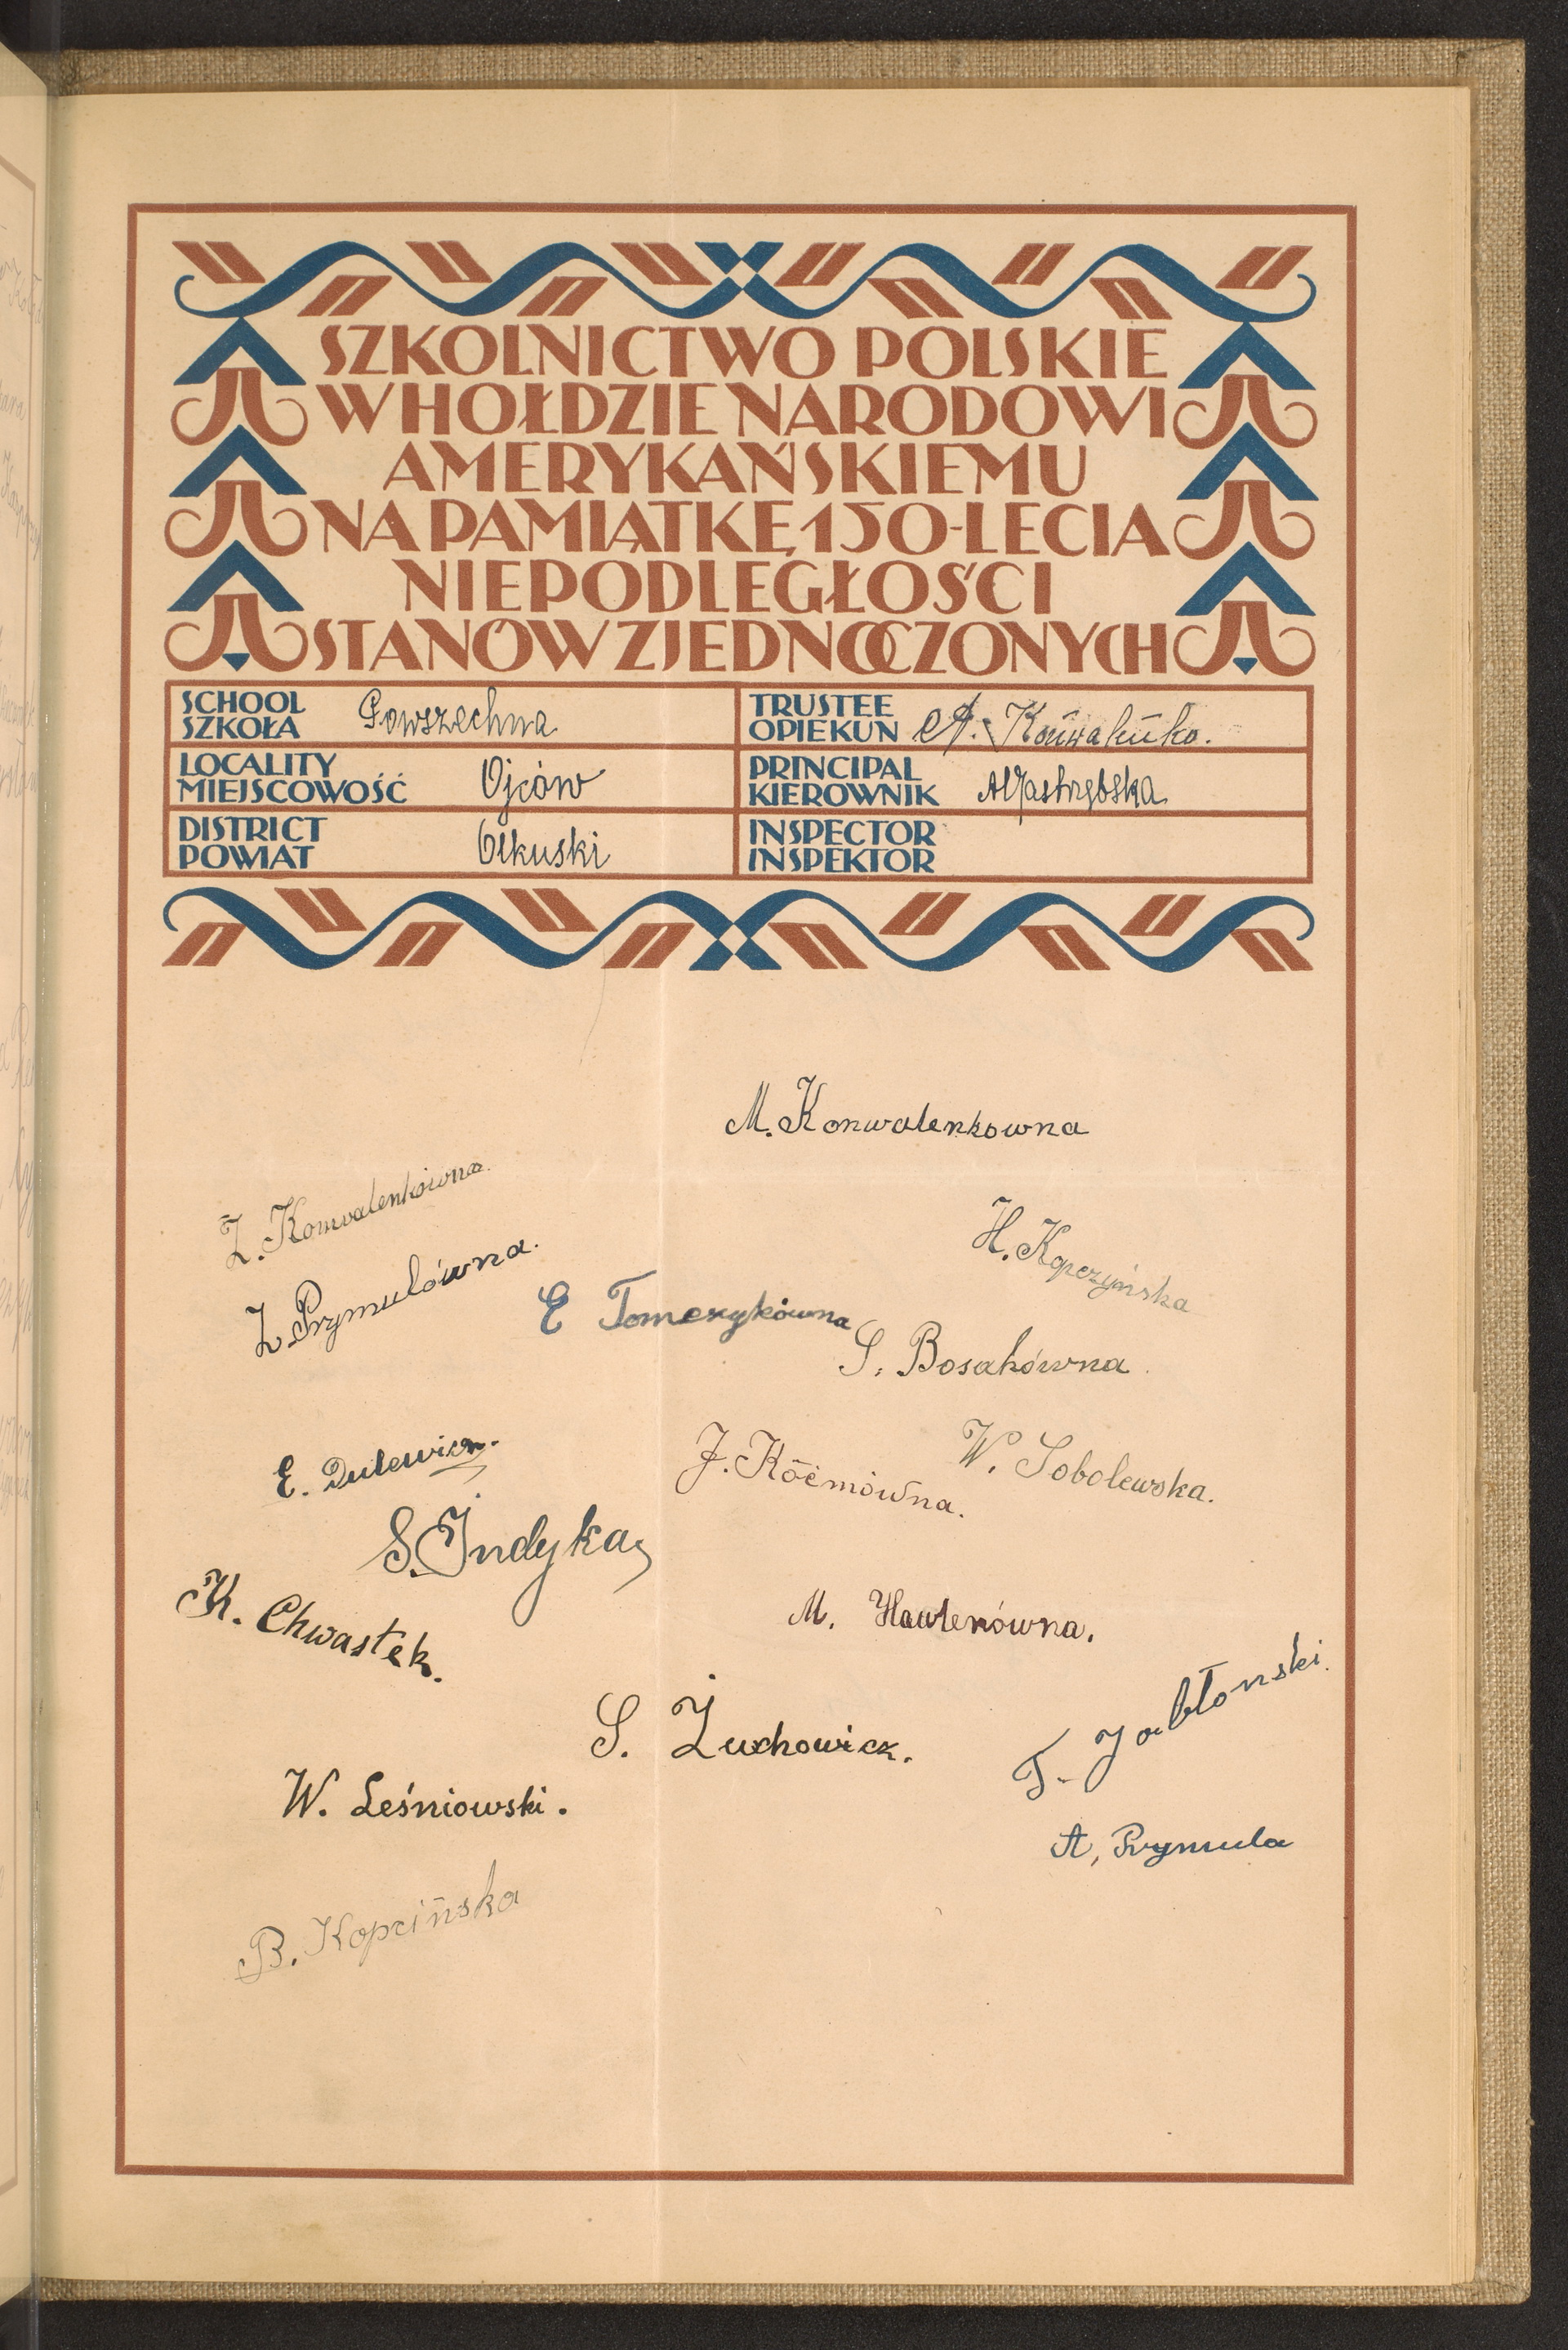 SZKOLNICTWO POLSKIE
W HOŁDZIE NARODOWI
AMERYKAŃSKIEMU
NA PAMIĄTKĘ 150-LECIA
NIEPODLEGŁOŚCI
STANÓW ZJEDNOCZONYCH
SCHOOL
SZKOŁA Powszechna
TRUSTEE
OPIEKUN A.
LOCALITY
MIEJSCOWOŚĆ Ojców
PRINCIPAL
KIEROWNIK AJastrzębska
DISTRICT
POWIAT Olkuski
INSPECTOR
INSPEKTOR
M. Konwalenkowna
Z. Konwalenkówna.
H. Kopczyńska
Z. Prymulówna.
E Tomczykówna
S. Bosakówna
E. Dulewicz.
J.
W. Sobolewska.
S. Indyka
K. Chwastek.
M. Hawlenówna.
S. Żuchowicz.
T. Jabłonski.
W. Leśniowski.
A, Prymula
B. Kopcińska